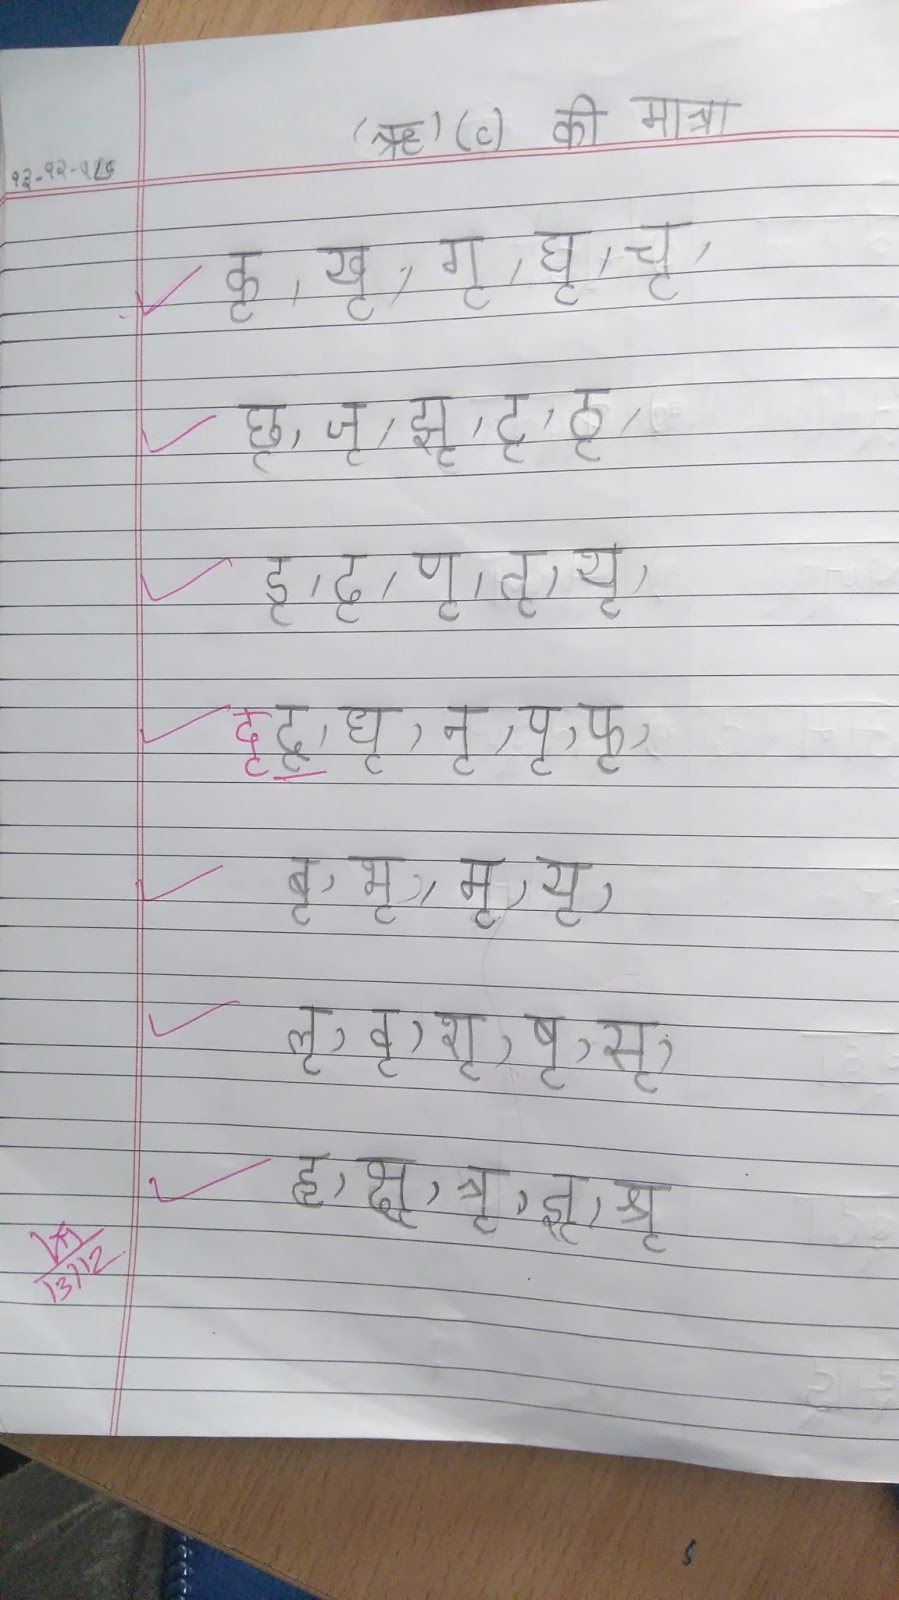 (ऋ) (ृ) की मात्रा
कृ, खृ, गृ, घृ, चृ,
छृ, जृ, झृ, टृ, ठृ,
डृ, ढृ, णृ, तृ, थृ,
दृ दृ, धृ, नृ, पृ, फृ,
बृ, भृ, मृ, यृ,
लृ, वृ, शृ, षृ, सृ,
हृ, क्षृ, त्रृ, ज्ञृ, श्रृ
13/12